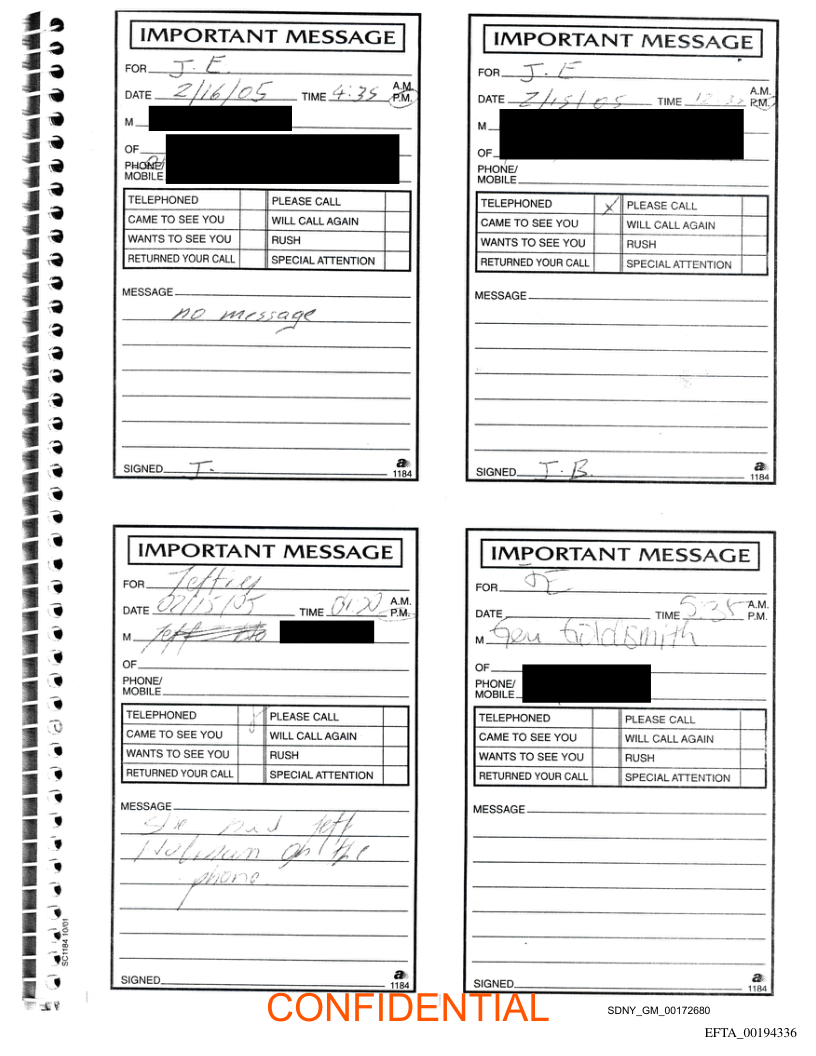 IMPORTANT MESSAGE
FOR J. E.
DATE 2/16/05 TIME 4:35 A.M. P.M.
M
OF
PHONE/
MOBILE
TELEPHONED PLEASE CALL
CAME TO SEE YOU WILL CALL AGAIN
WANTS TO SEE YOU RUSH
RETURNED YOUR CALL SPECIAL ATTENTION
MESSAGE
no message
SIGNED J.
a
1184
IMPORTANT MESSAGE
FOR J. E
DATE 2/15/05 TIME A.M. P.M.
M
OF
PHONE/
MOBILE
TELEPHONED X PLEASE CALL
CAME TO SEE YOU WILL CALL AGAIN
WANTS TO SEE YOU RUSH
RETURNED YOUR CALL SPECIAL ATTENTION
MESSAGE
SIGNED J. B.
a
1184
IMPORTANT MESSAGE
FOR Jeffrey
DATE 02/15/05 TIME 01:20 A.M. P.M.
M Jeff
OF
PHONE/
MOBILE
TELEPHONED PLEASE CALL
CAME TO SEE YOU WILL CALL AGAIN
WANTS TO SEE YOU RUSH
RETURNED YOUR CALL SPECIAL ATTENTION
MESSAGE
She had Jeff
on the
phone
SIGNED
a
1184
IMPORTANT MESSAGE
FOR JE
DATE TIME 5:38 A.M. P.M.
M Goldsmith
OF
PHONE/
MOBILE
TELEPHONED PLEASE CALL
CAME TO SEE YOU WILL CALL AGAIN
WANTS TO SEE YOU RUSH
RETURNED YOUR CALL SPECIAL ATTENTION
MESSAGE
SIGNED
a
1184
SC1184 10/01
CONFIDENTIAL
SDNY_GM_00172680
EFTA_00194336